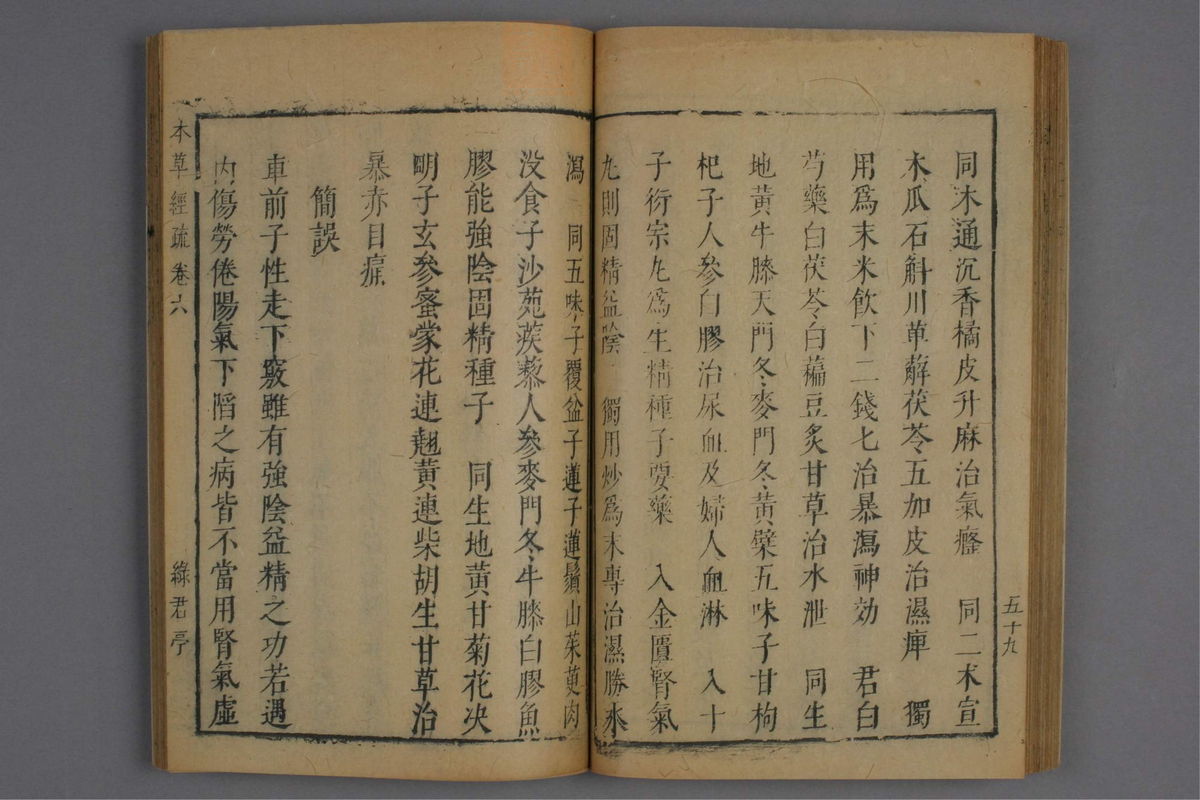 五十九
同木通沉香橘皮升麻治氣癃　同二术宣
木瓜石斛川萆薢茯苓五加皮治濕痺　獨
用爲末米飲下二錢匕治暴瀉神効　君白
芍藥白茯苓白藊豆炙甘草治水泄　同生
地黃牛膝天門冬麥門冬黃檗五味子甘枸
杞子人參白膠治尿血及婦人血淋　入十
子衍宗丸爲生精種子要藥　入金匱腎氣
丸則固精益陰　獨用炒爲末專治濕勝水
瀉　同五味子覆盆子蓮子蓮鬚山茱萸肉
没食子沙苑蒺藜人參麥門冬牛膝白膠魚
膠能強陰固精種子　同生地黃甘菊花决
明子玄參蜜蒙花連翹黃連柴胡生甘草治
暴赤目痛
簡誤
車前子性走下竅雖有強陰益精之功若遇
内傷勞倦陽氣下陷之病皆不當用腎氣虛
本草經疏　卷六　綠君亭